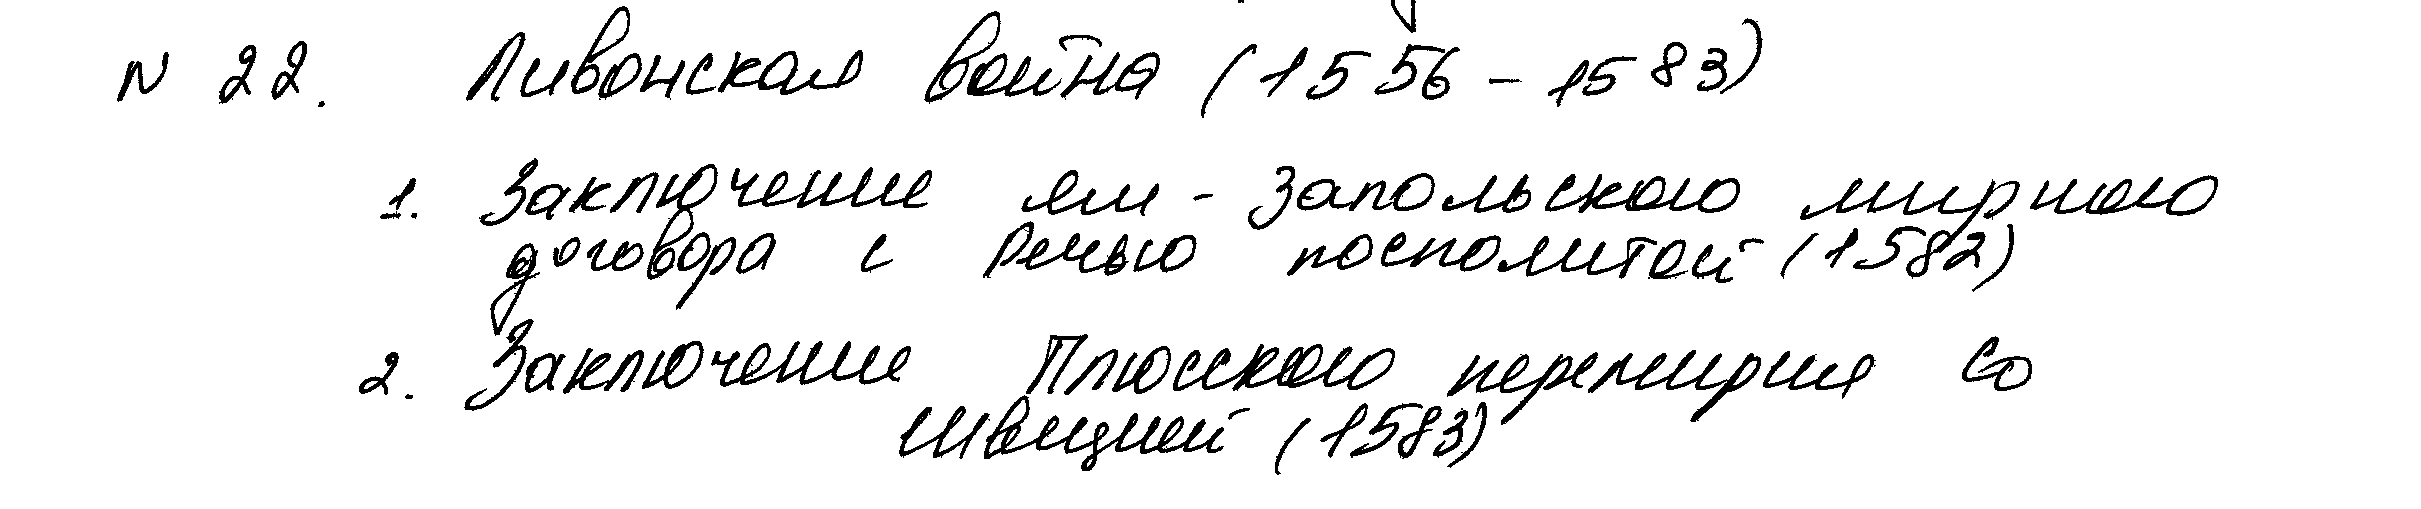 N 22. Ливонская война (1556 - 1583)
1. Заключение ям - Запольского мирного
договора с Речью посполитой (1582)
2. Заключение Плюсского перемирия со
Швецией (1583)